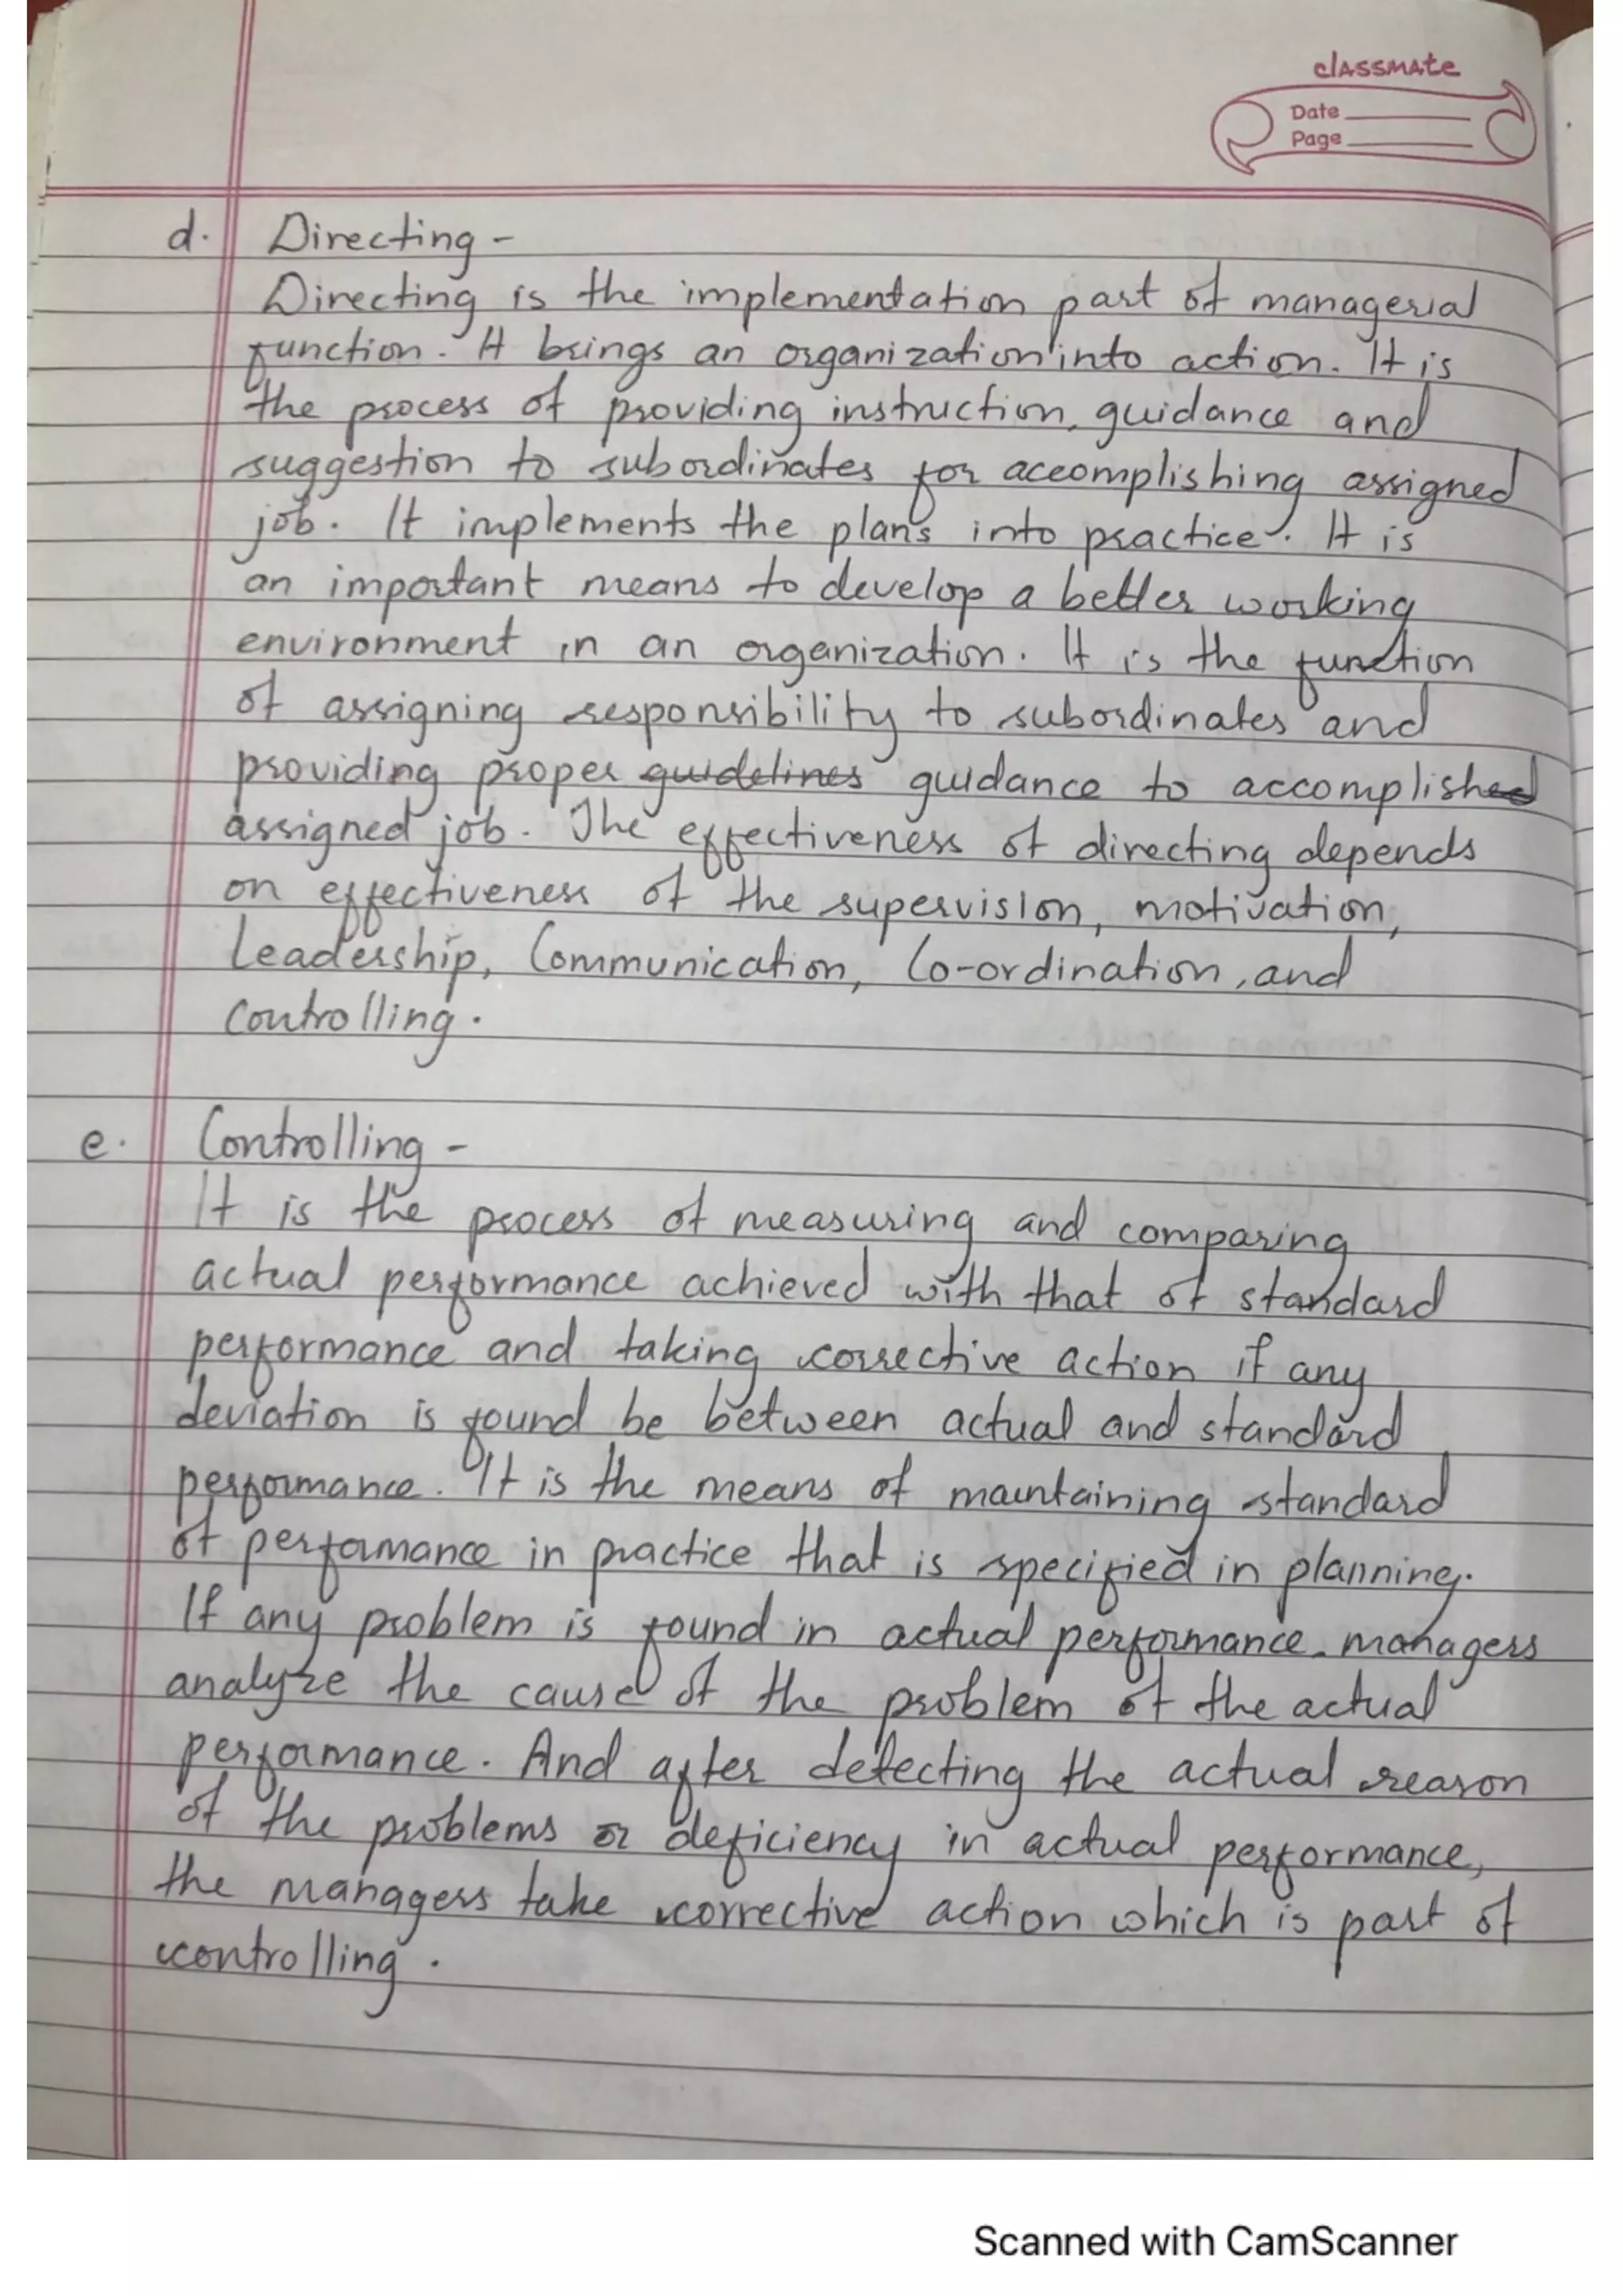 classmate
Date
Page
d. Directing -
Directing is the implementation part of managerial
function. It brings an organization into action. It is
the process of providing instruction, guidance and
suggestion to subordinates for accomplishing assigned
job. It implements the plans into practice. It is
an important means to develop a better working
environment in an organization. It is the function
of assigning responsibility to subordinates and
providing proper guidelines guidance to accomplished
assigned job. The effectiveness of directing depends
on effectiveness of the supervision, motivation,
Leadership, Communication, Co-ordination, and
Controlling.
e. Controlling -
It is the process of measuring and comparing
actual performance achieved with that of standard
performance and taking corrective action if any
deviation is found be between actual and standard
performance. It is the means of maintaining standard
of performance in practice that is specified in planning.
If any problem is found in actual performance. managers
analyze the cause of the problem of the actual
performance. And after detecting the actual reason
of the problems or deficiency in actual performance,
the managers take corrective action which is part of
controlling.
Scanned with CamScanner